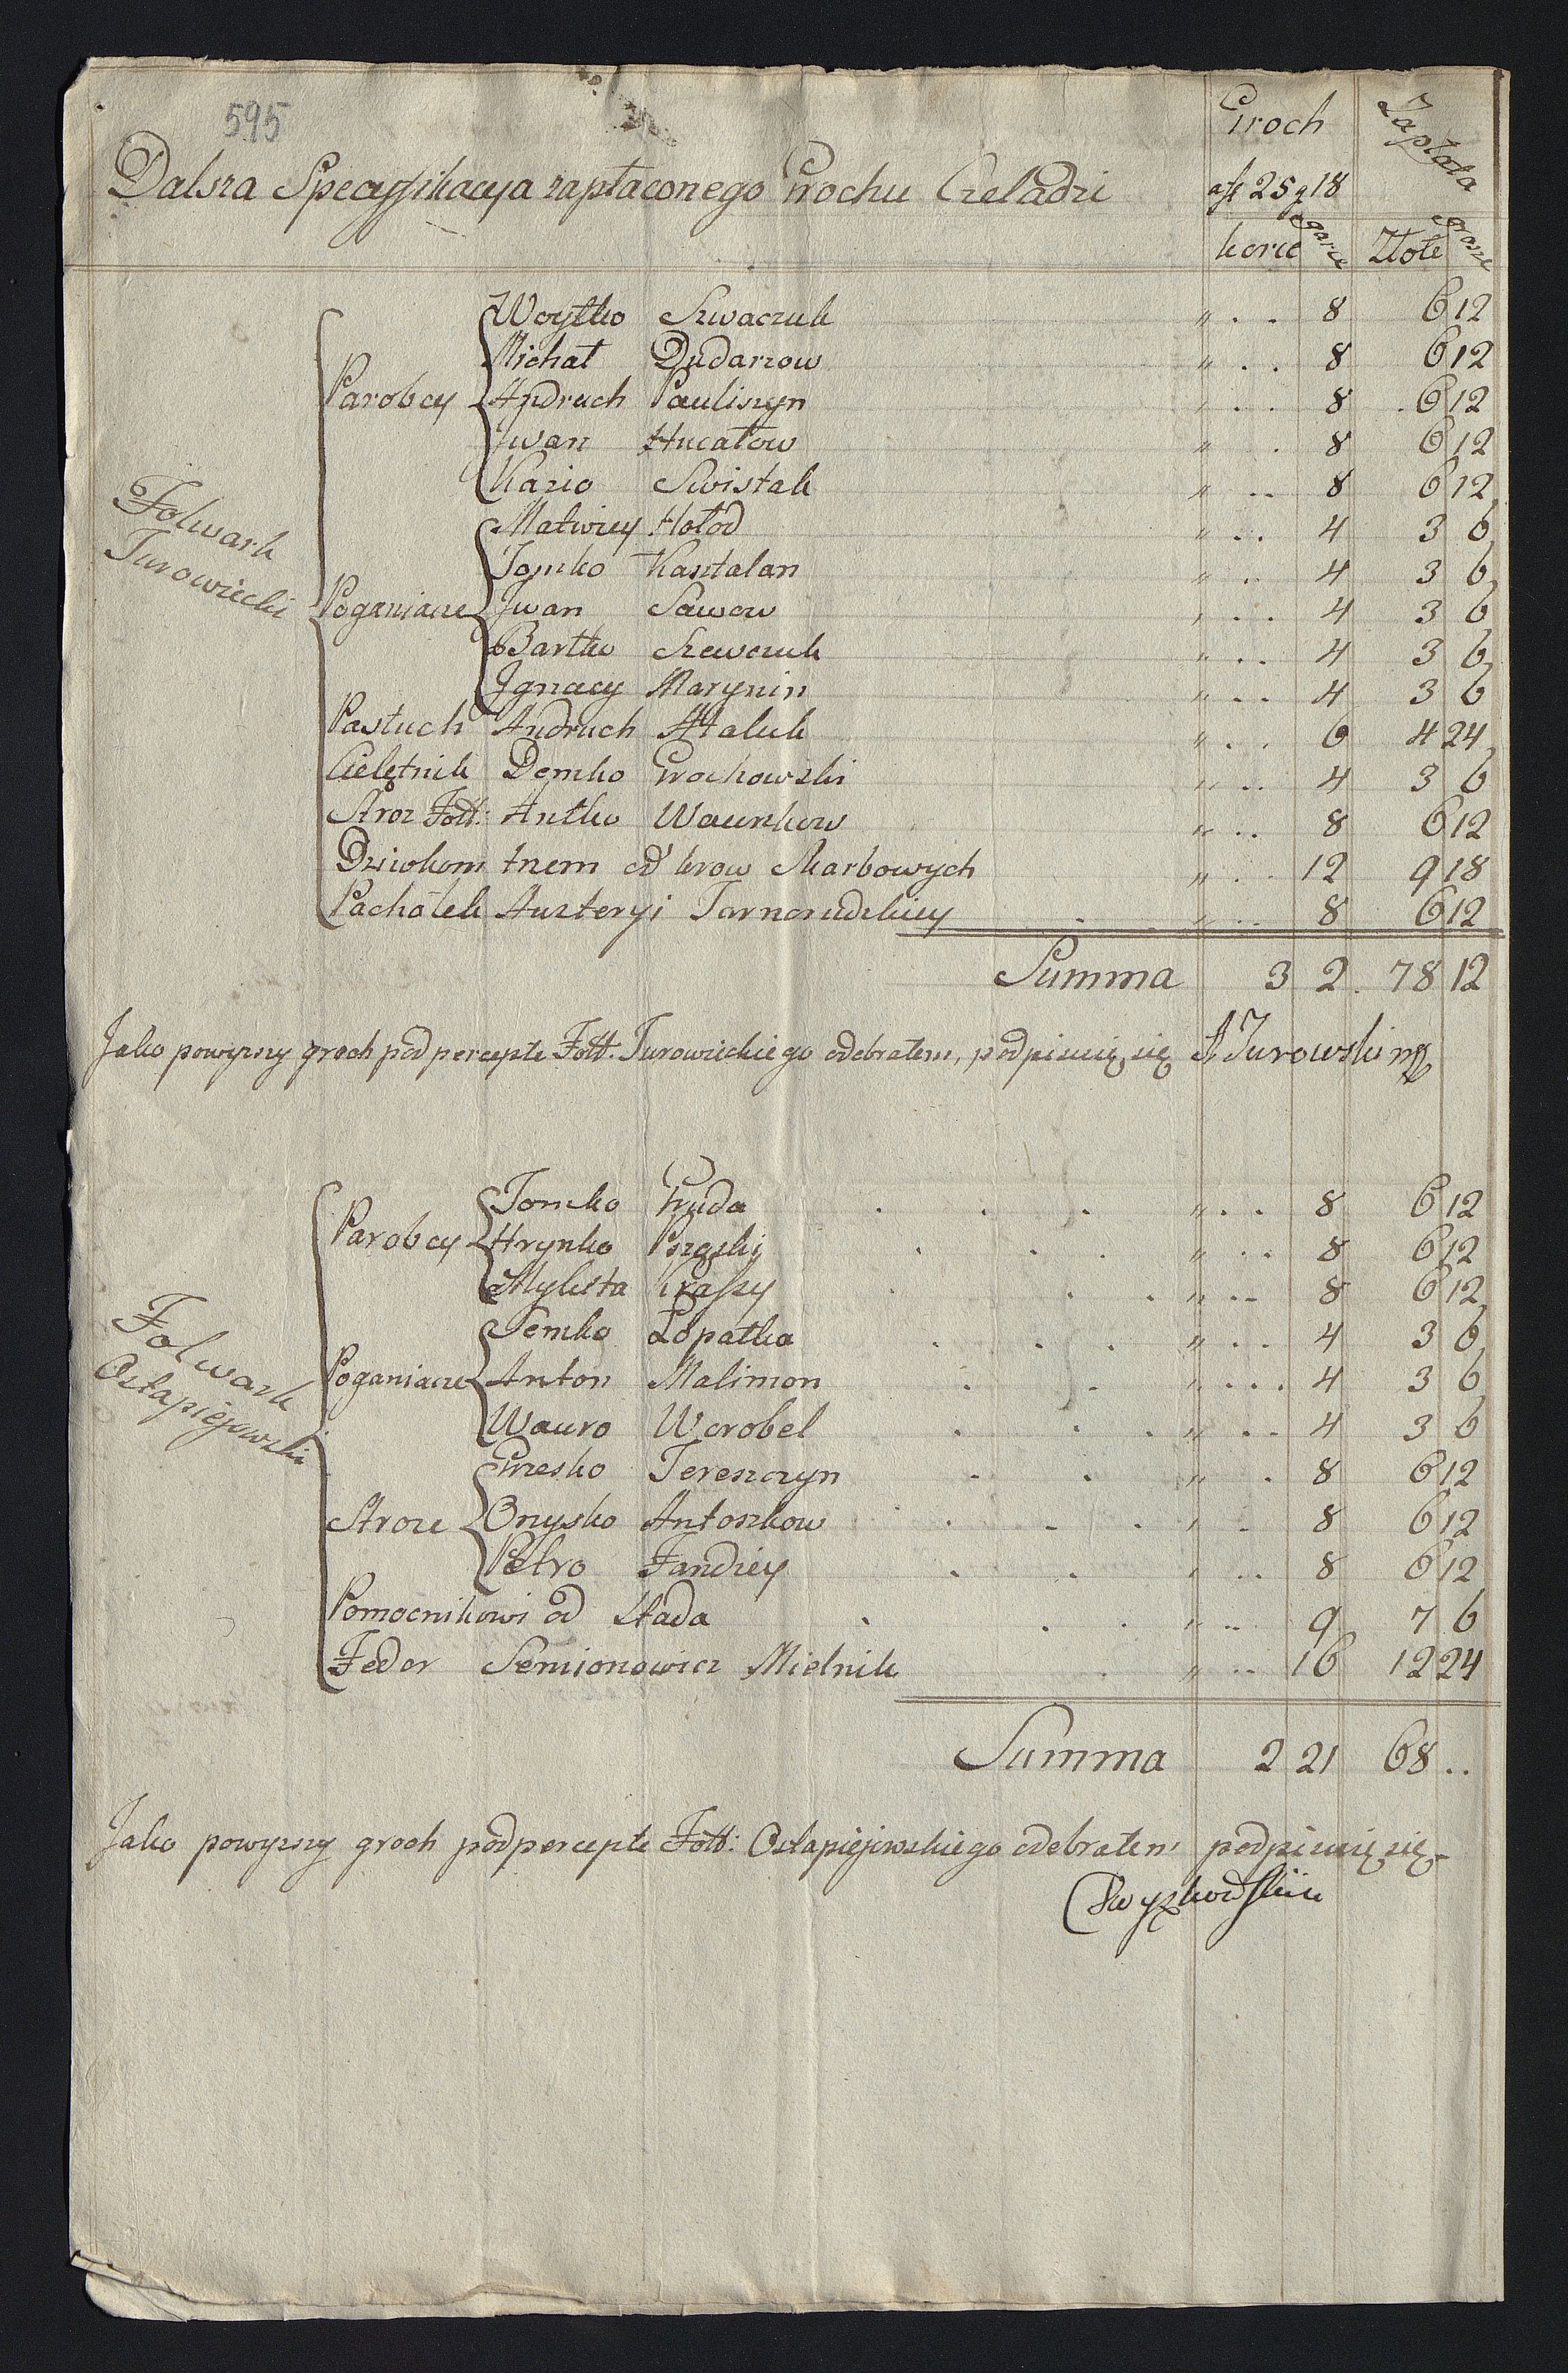 595
Groch Zapłata
Dalsza Specyfikacya zapłaconego Grochu Czeladzi
a f 25 g 18
korce garce Złote grosze
Folwark Turowiecki
Parobcy Woytko Szwaczuk " . . 8 6 12
Michał Dudarzow " . . 8 6 12
Andruch Pauliszyn " . . 8 6 12
Jwan Hucałow " . 8 6 12
Kazio Swistak " . . 8 6 12
Matwiey Hołod " . . 4 3 6
Poganiacze Tomko Kasztalan " . . 4 3 6
Jwan Sawow " . . 4 3 6
Bartko Szewczuk " . . 4 3 6
Jgnacy Marynin " . . 4 3 6
Pastuch Andruch Hałuk " . . 6 4 24
Cielętnik Demko Grochowski " . . 4 3 6
Stroz Foll: Antko Waurykow " . . 8 6 12
Dziwkom trzem od krow Skarbowych " . . 12 9 18
Pachołek Austeryi Tarnorudzkiey " . . 8 6 12
Summa 3 2 . 78 12
Jako powyzszy groch pod percepte Foll. Turowieckiego odebrałem, podpisuię się A Turowski mp
Folwark Ostapiejowski
Parobcy Tomko Gruda " . . 8 6 12
Hrynko Pszgski " . . 8 6 12
Mykita Kraszy " . . 8 6 12
Semko Łopatka " . . 4 3 6
Poganiacze Anton Malimon " . . . 4 3 6
Wauro Worobel " . . . 4 3 6
Grzesko Tereszczyn " . 8 6 12
Stroze Onysko Antoszkow " . 8 6 12
Petro Fandiey " . . 8 6 12
Pomocnikowi od Stada " . . 9 7 6
Fedor Semionowicz Mielnik " . . 16 12 24
Summa 2 21 68 . .
Jako powyzszy groch pod percepte Foll: Ostapiejowskiego odebrałem podpisuię się